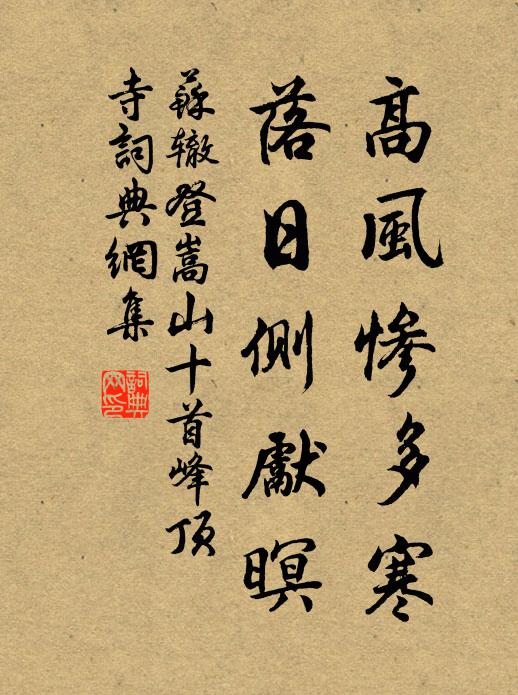 高風慘多寒
落日側獻暝
蘇辙登嵩山十首峰頂
寺詞典網集
詞典網印